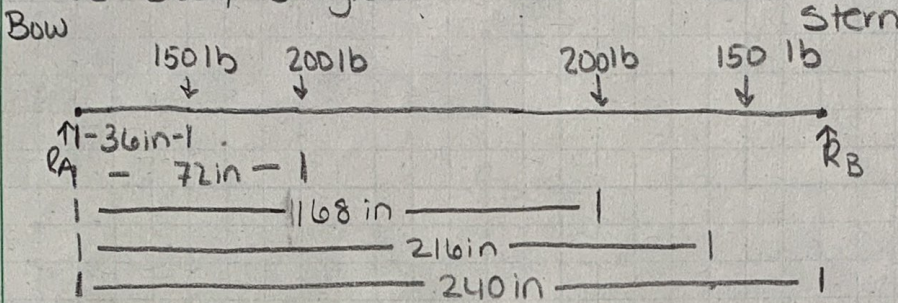 Bow Stern
150 lb 200 lb 200 lb 150 lb
36in
RA 72in RB
168 in
216in
240 in